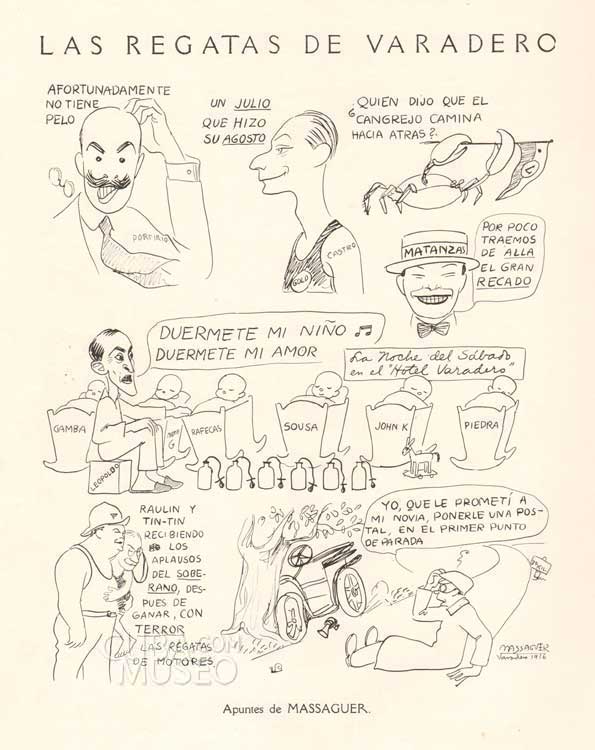 LAS REGATAS DE VARADERO
AFORTUNADAMENTE
NO TIENE
PELO
PORFIRIO
UN JULIO
QUE HIZO
SU AGOSTO
CASTRO
GOLD
¿QUIEN DIJO QUE EL
CANGREJO CAMINA
HACIA ATRAS?
MATANZAS
POR POCO
TRAEMOS
DE ALLA
EL GRAN
RECADO
DUERMETE MI NIÑO
DUERMETE MI AMOR
La Noche del Sábado
en el "Hotel Varadero"
GAMBA
G
RAFECAS
SOUSA
JOHN K
PIEDRA
LEOPOLDO
RAULIN Y
TIN-TIN
RECIBIENDO
LOS
APLAUSOS
DEL SOBE-
RANO, DES-
PUES DE
GANAR, CON
TERROR
LAS REGATAS
DE MOTORES
YO, QUE LE PROMETÍ A
MI NOVIA, PONERLE UNA POS-
TAL, EN EL PRIMER PUNTO
DE PARADA
MASSAGUER
Varadero 1916
.COM
MUSEO
Apuntes de MASSAGUER.